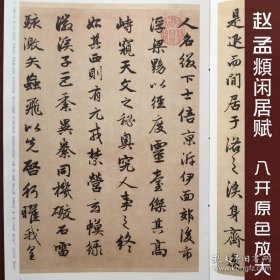 赵孟頫闲居赋 八开原色放大
是退而閒居于洛之涘身齊
人名綴下士偝京泝伊面郊後市
浮梁黝以徑度靈臺傑其高
峙窺天文之秘奥究人事之終
始其西則有元戎禁營玄幙緑
徽谿子巨黍異絭同機礮石雷
駭激矢蝱飛以先啓行曜我皇